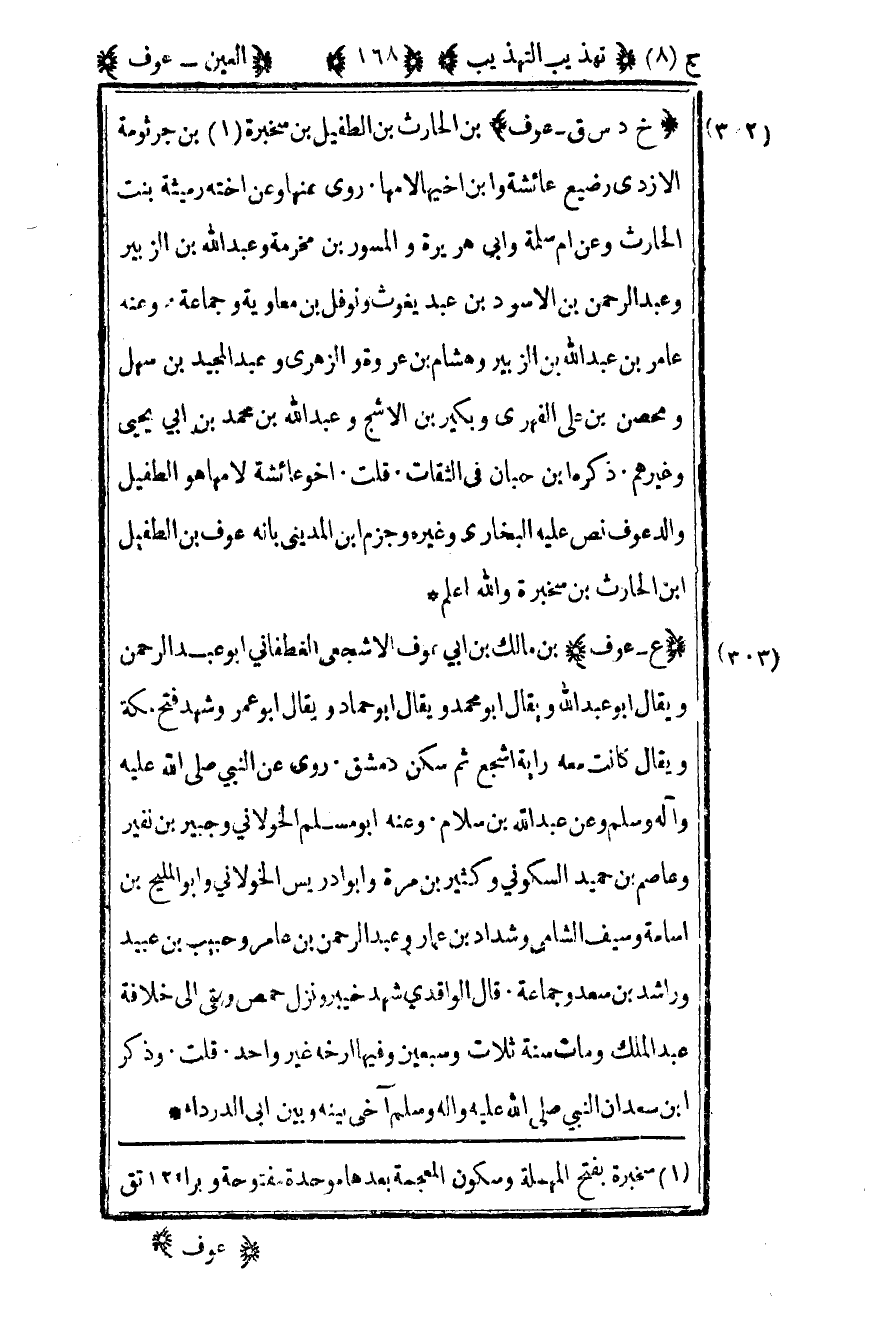 ج (٨) ﴿ تهذيب التهذيب ﴾ ﴿ ١٦٨ ﴾ ﴿ العين ـ عوف ﴾
(٣٠٢) ﴿ خ د س ق ـ عوف ﴾ بن الحارث بن الطفيل بن سخبرة (١) بن جرثومة
الازدى رضيع عائشة وابن اخيها لامها . روى عنها وعن اخته رميثة بنت
الحارث وعن ام سلمة وابي هريرة و المسور بن مخرمة وعبد الله بن الزبير
وعبد الرحمن بن الاسود بن عبد يغوث ونوفل بن معاوية و جماعة . وعنه
عامر بن عبد الله بن الزبير وهشام بن عروة و الزهرى و عبد المجيد بن سهل
و محصن بن على الفهرى و بكير بن الاشج و عبد الله بن محمد بن ابي يحيى
وغيرهم . ذكره ابن حبان فى الثقات . قلت . اخو عائشة لامها هو الطفيل
والد عوف نص عليه البخارى وغيره وجزم ابن المدينى بانه عوف بن الطفيل
ابن الحارث بن سخبرة والله اعلم *
(٣٠٣) ﴿ ع ـ عوف ﴾ بن مالك بن ابي عوف الاشجعى الغطفاني ابو عبد الرحمن
و يقال ابو عبد الله و يقال ابو محمد و يقال ابو حماد و يقال ابو عمر وشهد فتح مكة
و يقال كانت معه راية اشجع ثم سكن دمشق . روى عن النبي صلى الله عليه
وآله وسلم وعن عبد الله بن سلام . وعنه ابو مسلم الخولاني وجبير بن نفير
وعاصم بن حميد السكوني و كثير بن مرة وابو ادريس الخولاني وابو المليح بن
اسامة وسيف الشامى وشداد بن عمار وعبد الرحمن بن عامر وحبيب بن عبيد
وراشد بن سعد وجماعة . قال الواقدي شهد خيبر ونزل حمص وبقى الى خلافة
عبد الملك ومات سنة ثلاث وسبعين وفيها ارخه غير واحد . قلت . وذكر
ابن سعد ان النبي صلى الله عليه واله وسلم آخى بينه و بين ابى الدرداء *
(١) سخبرة بفتح المهملة وسكون المعجمة بعدها موحدة مفتوحة و براء ١٢ تق
﴿ عوف ﴾